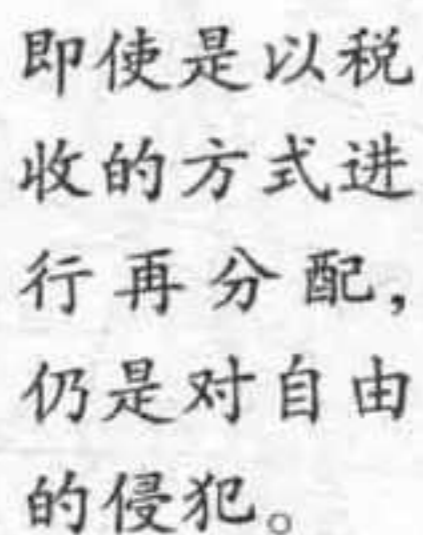 即使是以税
收的方式进
行再分配，
仍是对自由
的侵犯。